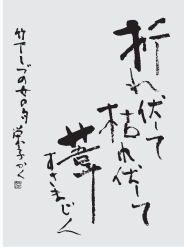 折れ伏して
枯れ伏して
葦
すさまじく
竹下しづの女の句
かく